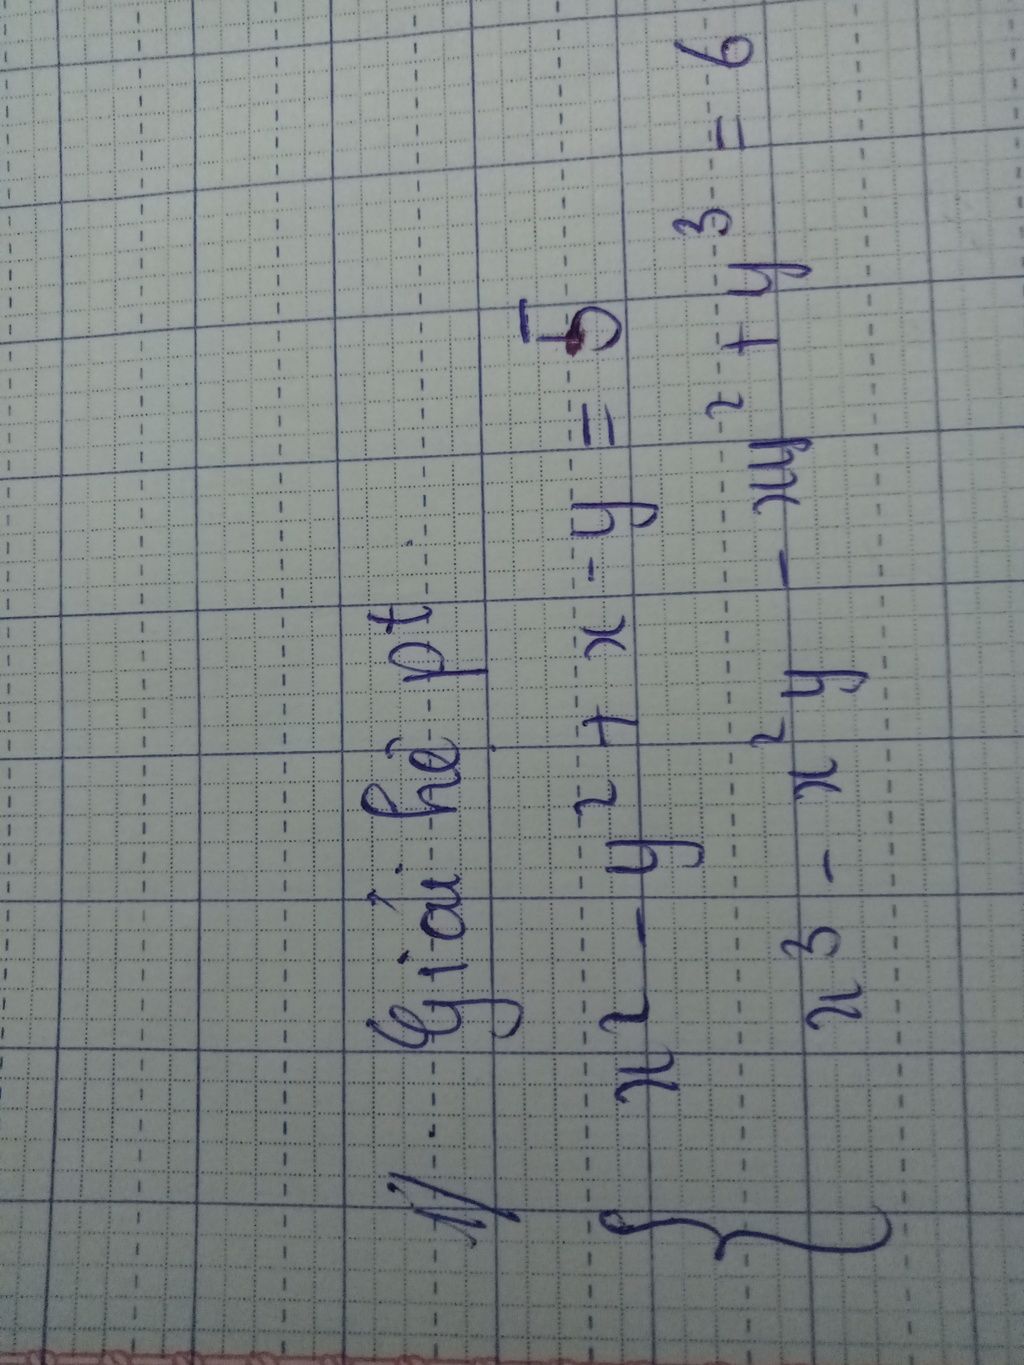 1/ Giải hệ pt
{ x² - y² + x - y = 5
x³ - x²y - xy² + y³ = 6